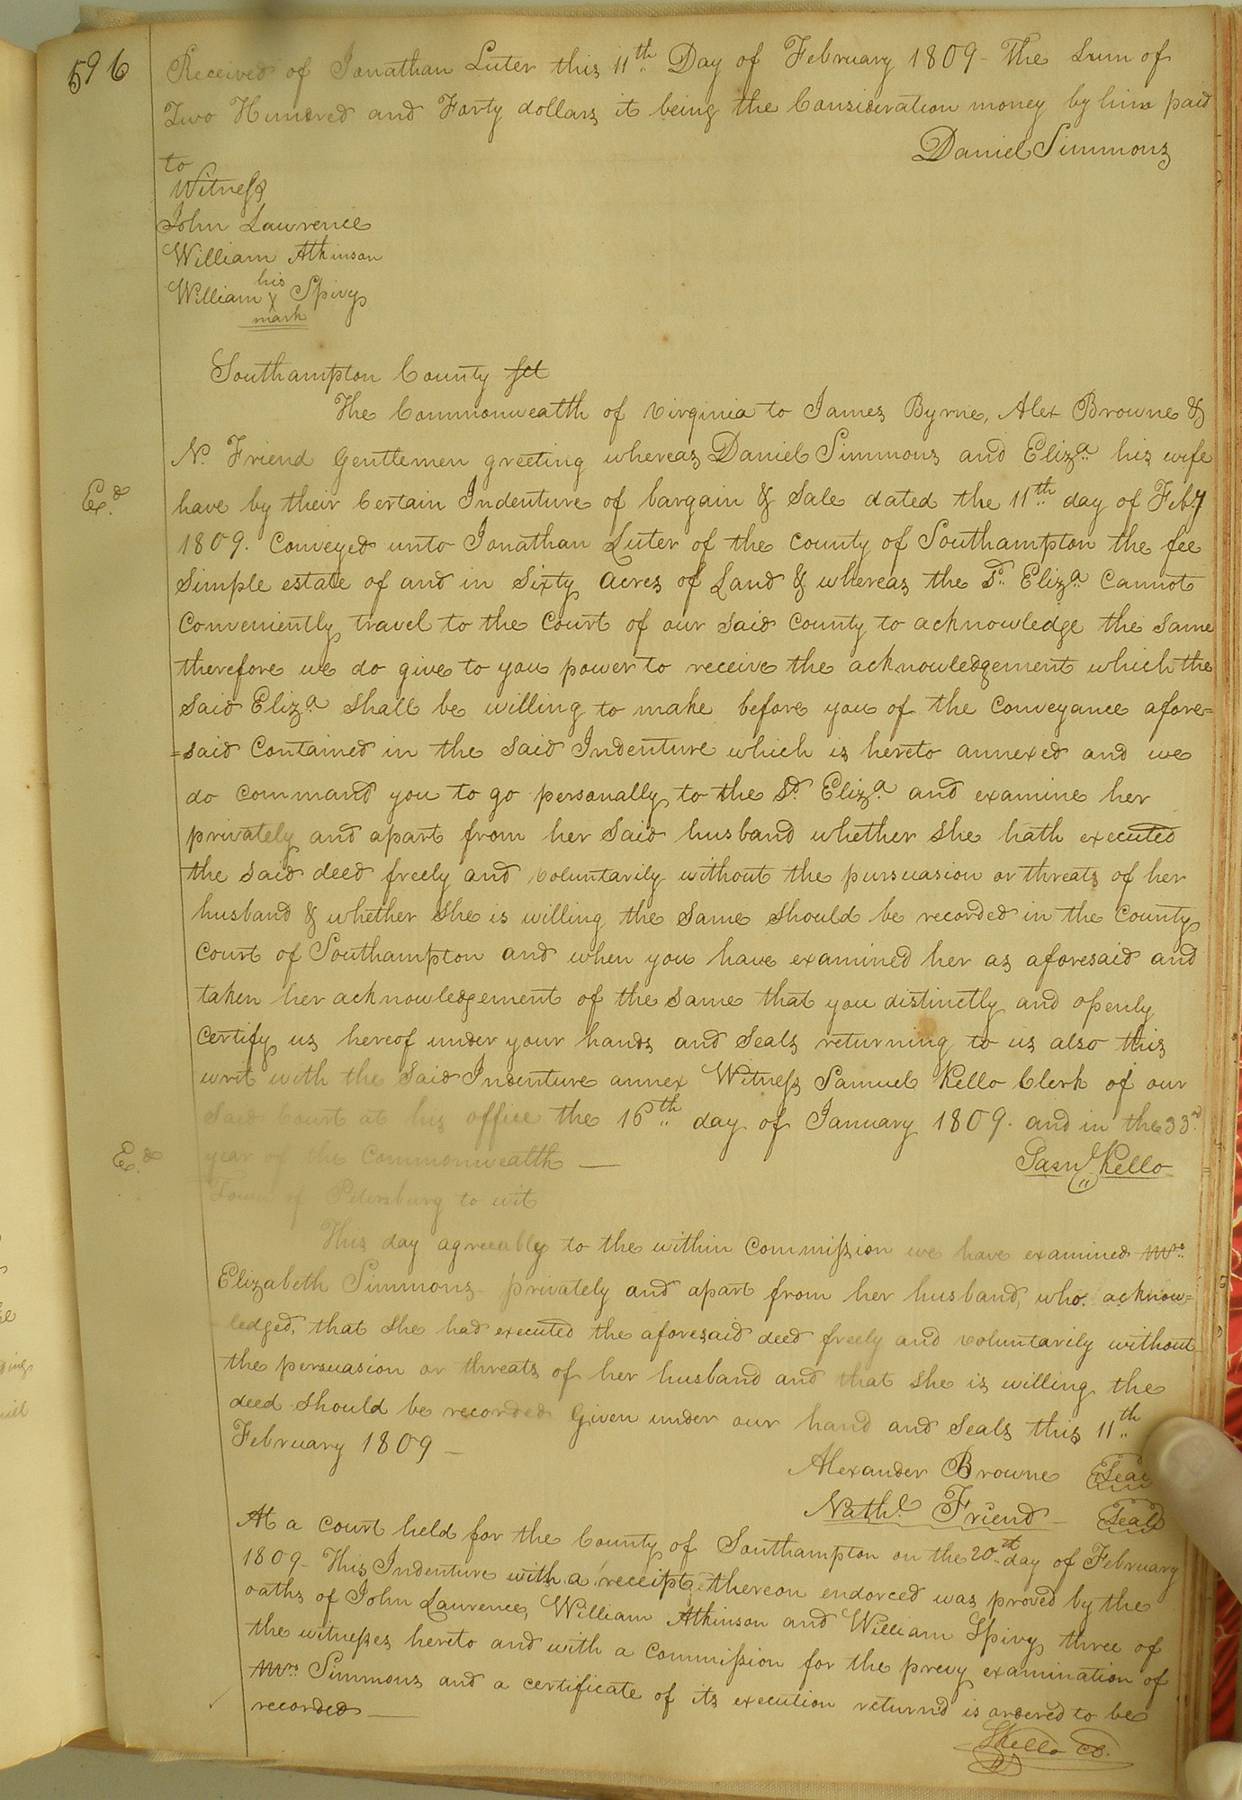 596
Received of Jonathan Luter this 11th Day of February 1809 - The Sum of
Two Hundred and Forty dollars it being the Consideration money by him paid
Daniel Simmons
to
Witness
John Lawrence
William Atkinson
William his Spivy
X
mark
Southampton County Sct
The Commonwealth of Virginia to James Byrne, Alex Browne &
N. Friend Gentlemen greeting whereas Daniel Simmons and Eliza his wife
Exd.
have by their Certain Indenture of bargain & Sale dated the 11th day of Feby
1809. Conveyed unto Jonathan Luter of the county of Southampton the fee
Simple estate of and in Sixty acres of Land & whereas the Sd. Eliza Cannot
Conveniently travel to the Court of our Said County to acknowledge the Same
therefore we do give to you power to receive the acknowledgement which the
Said Eliza Shall be willing to make before you of the Conveyance afore=
=said Contained in the Said Indenture which is hereto annexed and we
do command you to go personally to the Sd. Eliza and examine her
privately and apart from her Said husband whether She hath executed
the Said deed freely and voluntarily without the pursuasion or threats of her
husband & whether She is willing the Same Should be recorded in the County
Court of Southampton and when you have examined her as aforesaid and
taken her acknowledgement of the Same that you distinctly and openly
Certify us hereof under your hands and Seals returning to us also this
writ with the Said Indenture annex Witness Samuel Kello Clerk of our
Said Court at his office the 16th day of January 1809. and in the 33rd
Exd
year of the Commonwealth —
Saml Kello
Town of Petersburg to wit
This day agreeably to the within Commission we have examined Mrs.
Elizabeth Simmons privately and apart from her husband, who acknow=
ledged, that She had executed the aforesaid deed freely and voluntarily without
the persuasion or threats of her husband and that She is willing the
deed Should be recorded Given under our hand and Seals this 11th
February 1809 —
Alexander Browne Seal
Nathl. Friend - Seal
At a Court held for the County of Southampton on the 20th day of February
1809 - This Indenture with a receipt thereon endorced was proved by the
oaths of John Laurence, William Atkinson and William Spivy three of
the witnesses hereto and with a Commission for the prevy examination of
Mrs. Simmons and a certificate of its execution returnd is ordered to be
recorded —
SKello CC.